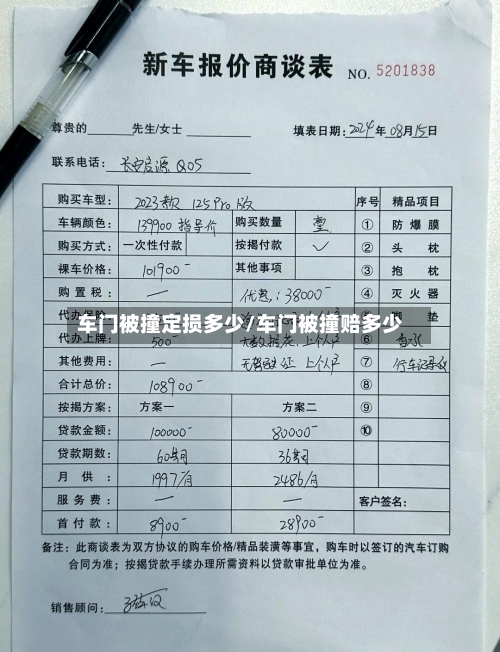 新车报价商谈表 NO. 5201838
尊贵的 先生/女士 填表日期：2024年08月15日
联系电话： 长安启源 Q05
购买车型： 2023款 125Pro 版 序号 精品项目
车辆颜色： 139900 指导价 购买数量 ① 防爆膜
购买方式： 一次性付款 按揭付款 ✓ ② 头枕
裸车价格： 101900- 其他事项 ③ 抱枕
购置税： — 优惠：38000- ④ 灭火器
车门被撞定损多少/车门被撞赔多少
代办上牌： 500- 上个户 ⑥
其他费用： — 上个户 ⑦ 行车记录仪
合计总价： 108900- ⑧
按揭方案： 方案一 方案二 ⑨
贷款金额： 100000- 80000- ⑩
贷款期数： 60期 36期
月供： 1997/月 2486/月
服务费： — — 客户签名：
首付款： 8900- 28900-
备注：此商谈表为双方协议的购车价格/精品装潢等事宜，购车时以签订的汽车订购
合同为准；按揭贷款手续办理所需资料以贷款审批单位为准。
销售顾问：